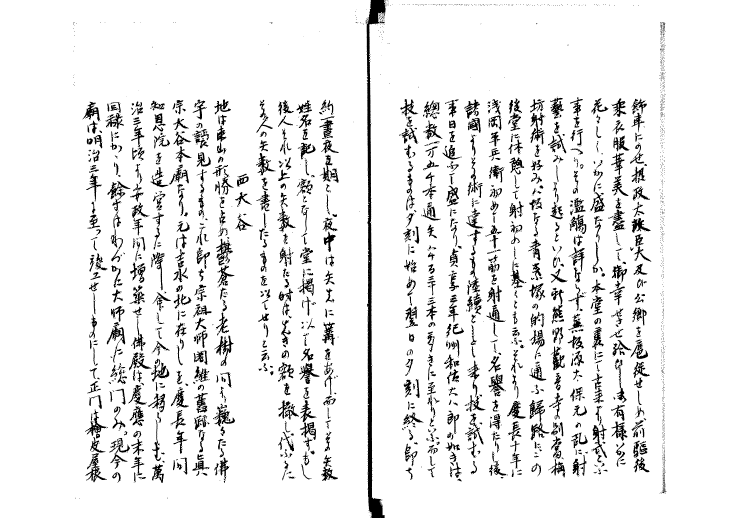 飾車にのせ摂政太政大臣及び公卿を扈従せしめ前駆後
乗衣服華美を尽して御幸せさせ給ひし有様
花々しくいかに盛なりしか。本堂の裏にて古来より射式といふ
事を行へり。その濫觴は詳ならず、蕪坂源太保元の乱に射
芸を試みしより起るといひ、又新熊野観音寺の別当梅
坊射術を好み八坂なる青系塚の的場に通ふ帰路にこの
後堂に休憩して射初めしに基くとも云ふ。それより慶長十年に
浅岡平兵衛初めて五十一筋を射通して名誉を得たり。後、
諸国よりその術に達するもの陸続として来り技を試むる
事日を追ふて盛になり貞享三年紀州和佐大八郎の如きは、
総数一万五千本通矢八千百三十三本の多きに至れりといふ。而して
技を試むるものは夕刻に始めて翌日の夕刻に終る即ち
約一昼夜を期とし、夜中は矢先に篝をあげ、而してその矢数
姓名を記し、額となして堂に掲げ以て名誉を表掲す。もし
後人それ以上の矢数を射たる時は先きの額を撤し代ふるに
その人の矢数を書したるものを以てせりと云ふ。
西大谷
地は東山の形勝を占め鬱蒼たる老樹の間に巍々たる仏
字の讃見するもの、これ即ち宗祖大師因縁の旧跡なる真
宗大谷本廟なり。元は吉水の北に在りしを慶長年間
知恩院を造営する際し、命じて今の地に移せしも、万
治三年頃より安政年間に増築せし仏殿は慶応の末年に
回禄にかゝり、余すはわづかに大師廟と総門のみ。現今の
廟は明治三年に至つて竣工せしものにして正門は桧皮屋根